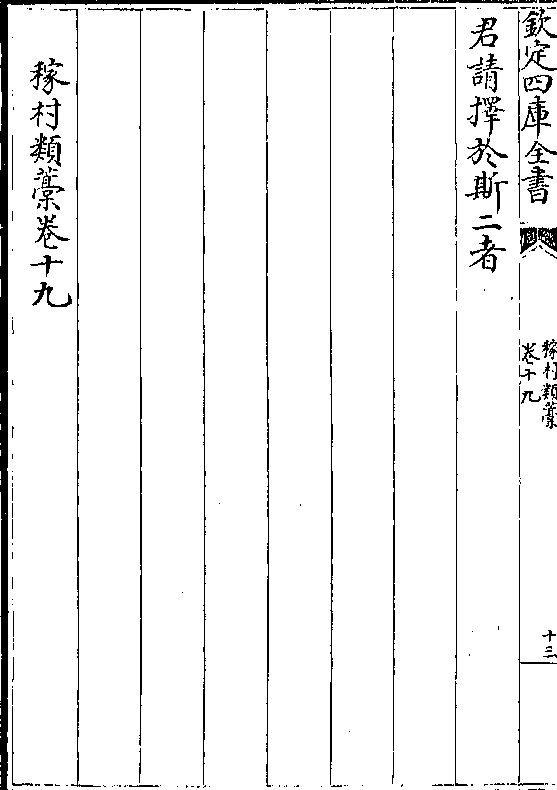 欽定四庫全書
稼村類藁
卷十九
十三
君請擇於斯二者
稼村類藁卷十九